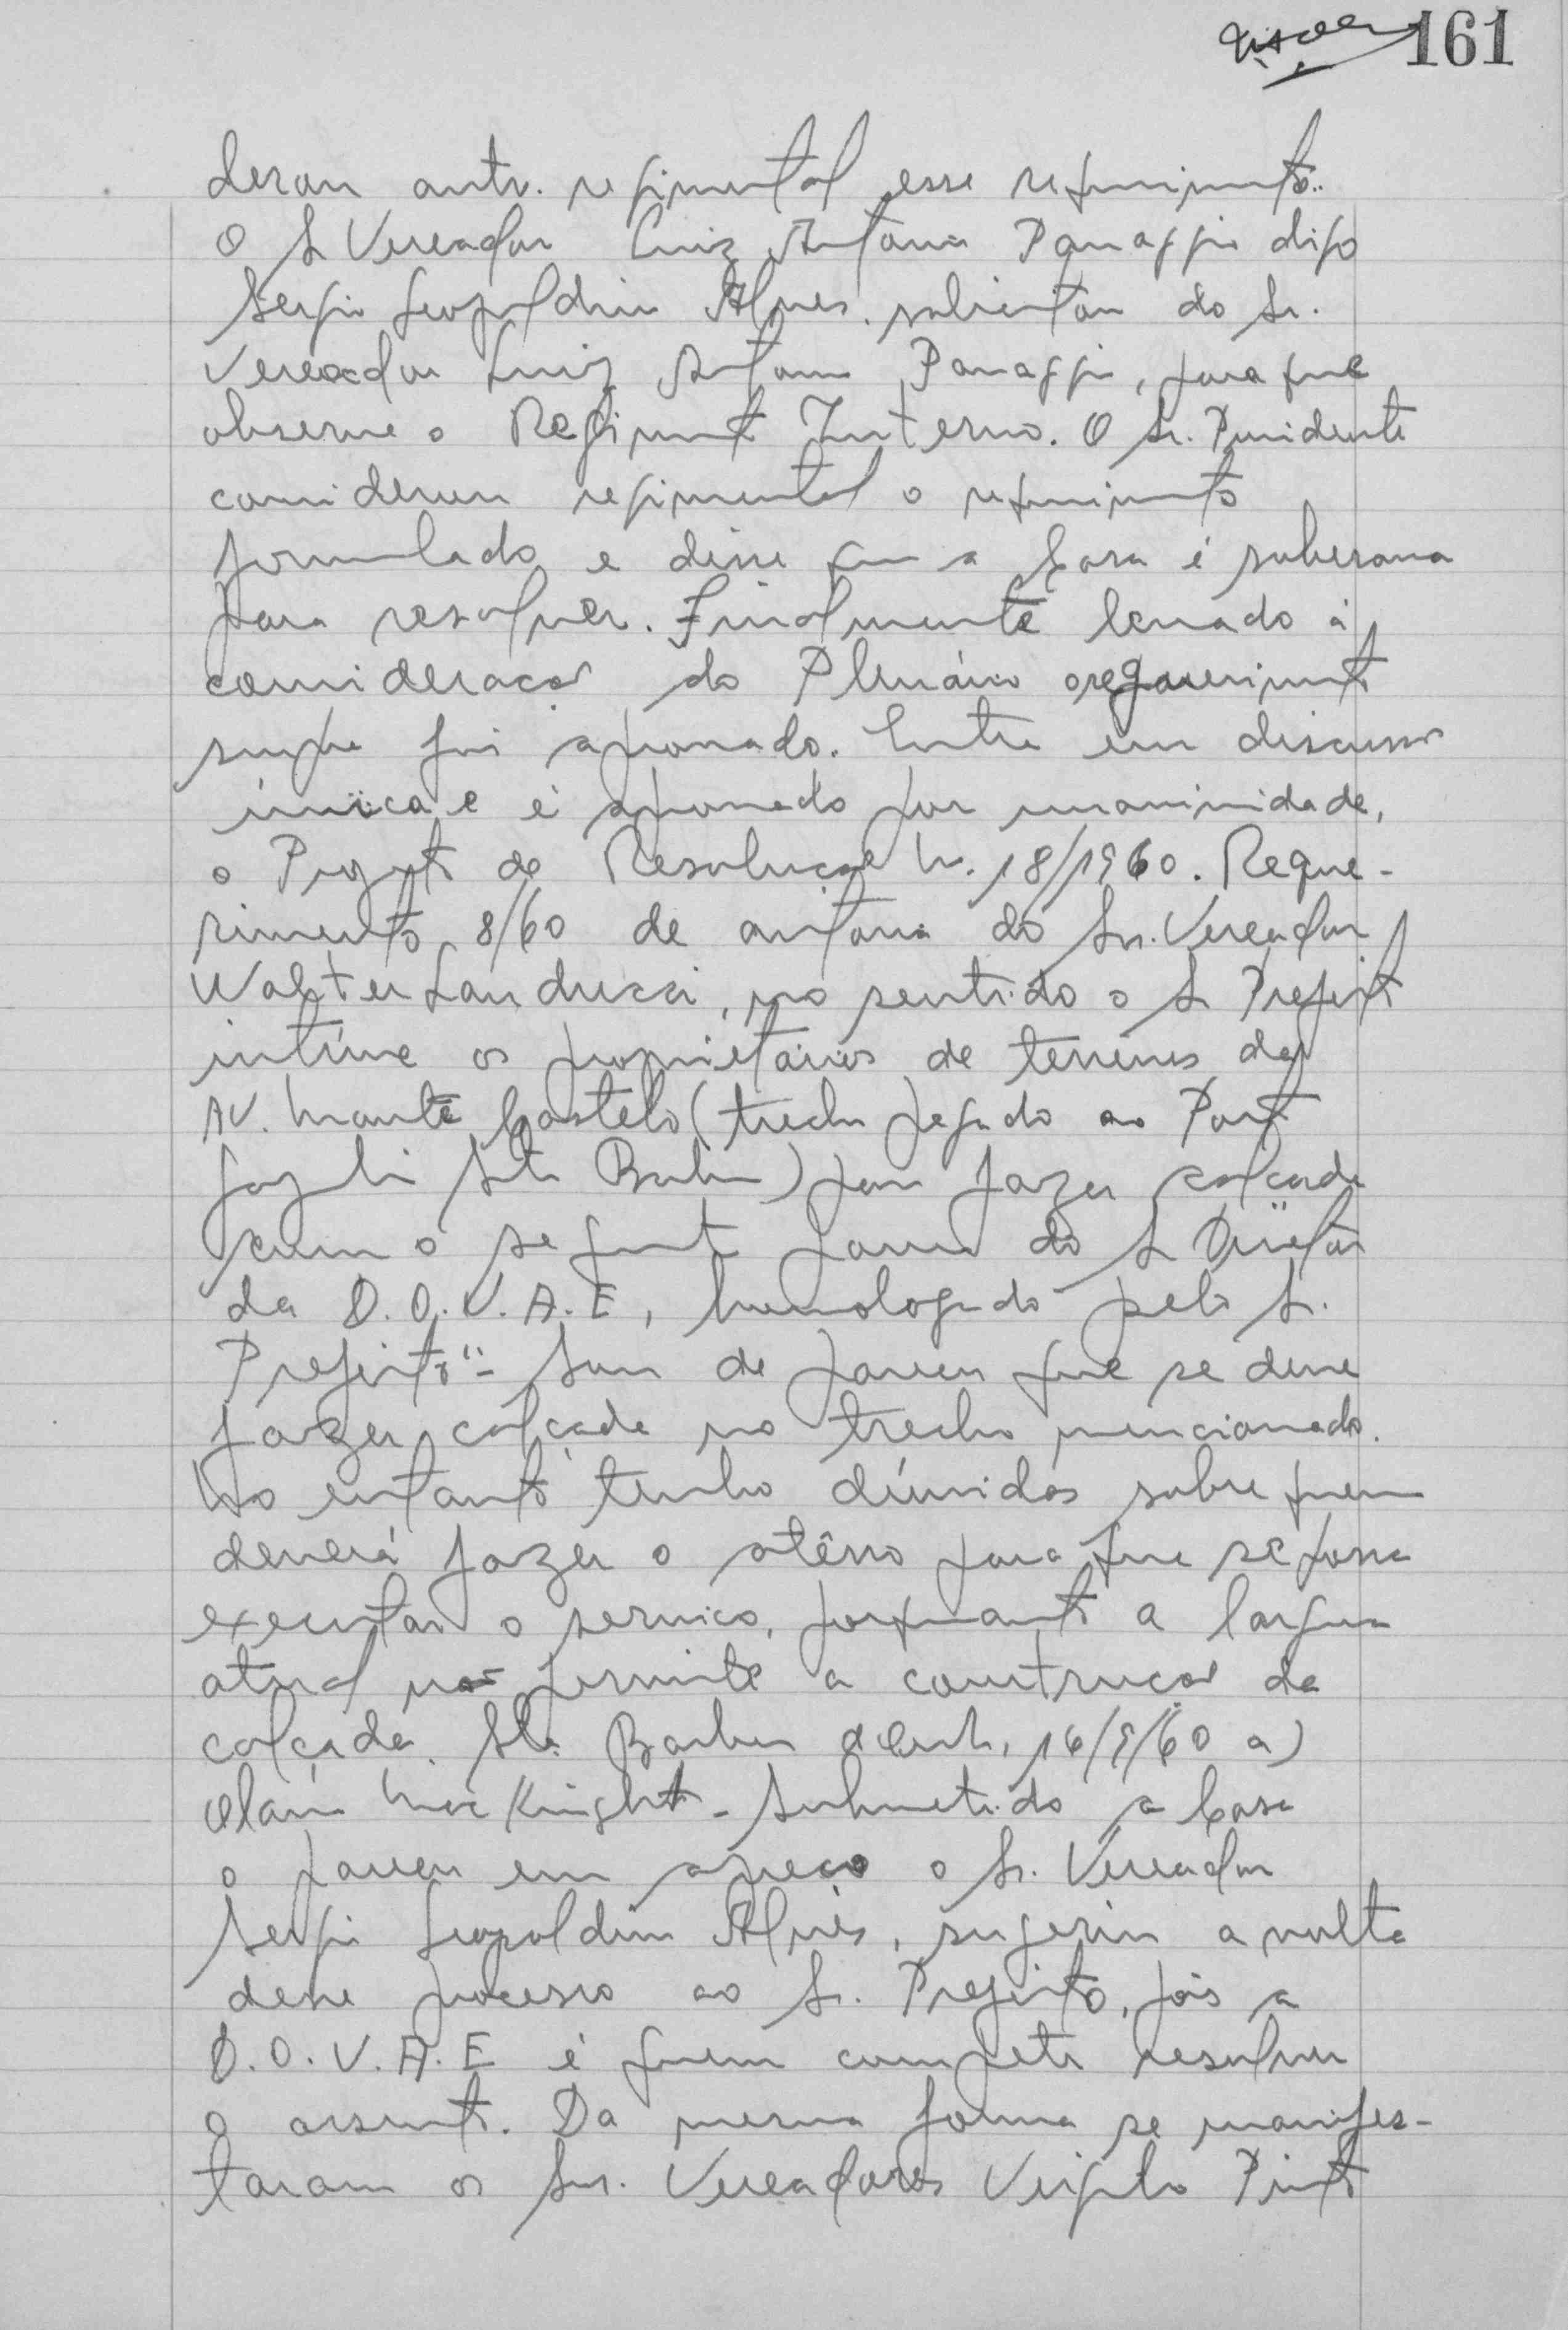 161
deram anti-regimental esse requerimento..
O Sr Vereador Luiz Antonio Panaggio digo
Sergio Leopoldino Alves, solicitou do Sr.
Vereador Luiz Antonio Panaggio, para que
observe o Regimento Interno. O Sr. Presidente
considerou regimental o requerimento
formulado e disse que a Casa é soberana
para resolver. Finalmente levado à
consideração do Plenário o requerimento
supra foi aprovado. Entra em discussão
única e é aprovado por unanimidade,
o Projeto de Resolução n. 18/1960. Reque-
rimento 8/60 de autoria do Sr. Vereador
Walter Landucci, no sentido o Sr Prefeito
intime os proprietários de terrenos da
AV. Monte Castelo (trecho pegado ao Posto
Sta Barbara) para fazer calçada
com o seguinte parecer do Sr Diretor
da D.O.V.A.E, homologado pelo Sr.
Prefeito "- Sou de parecer que se deve
fazer calçada no trecho mencionado.
No entanto tenho dúvidas sobre quem
deverá fazer o atêrro para que se possa
executar o serviço, porquanto a largura
atual não permite a construção da
calçada. Sta. Barbara d'Oeste, 16/9/60 a)
Mac Knight - Submetido a Casa
o parecer em apreço o Sr. Vereador
Sergio Leopoldino Alves, sugeriu a volta
desse processo ao Sr. Prefeito, pois a
D.O.V.A.E é quem compete resolver
o assunto. Da mesma forma se manifes-
taram os Srs. Vereadores Virgilio Pinto